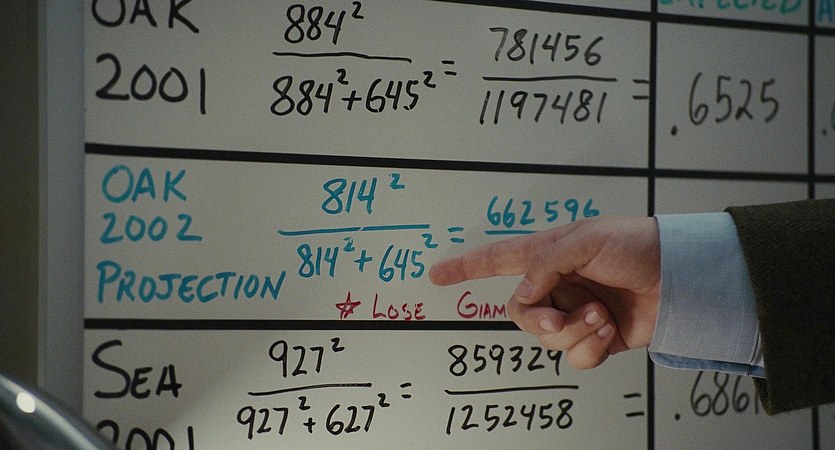 OAK
2001
884²
884²+645² =
781456
1197481 =
.6525
OAK
2002
PROJECTION
814²
814²+645² =
662596
☆ LOSE GIAM
SEA
2001
927²
927²+627² =
859329
1252458 =
.6861